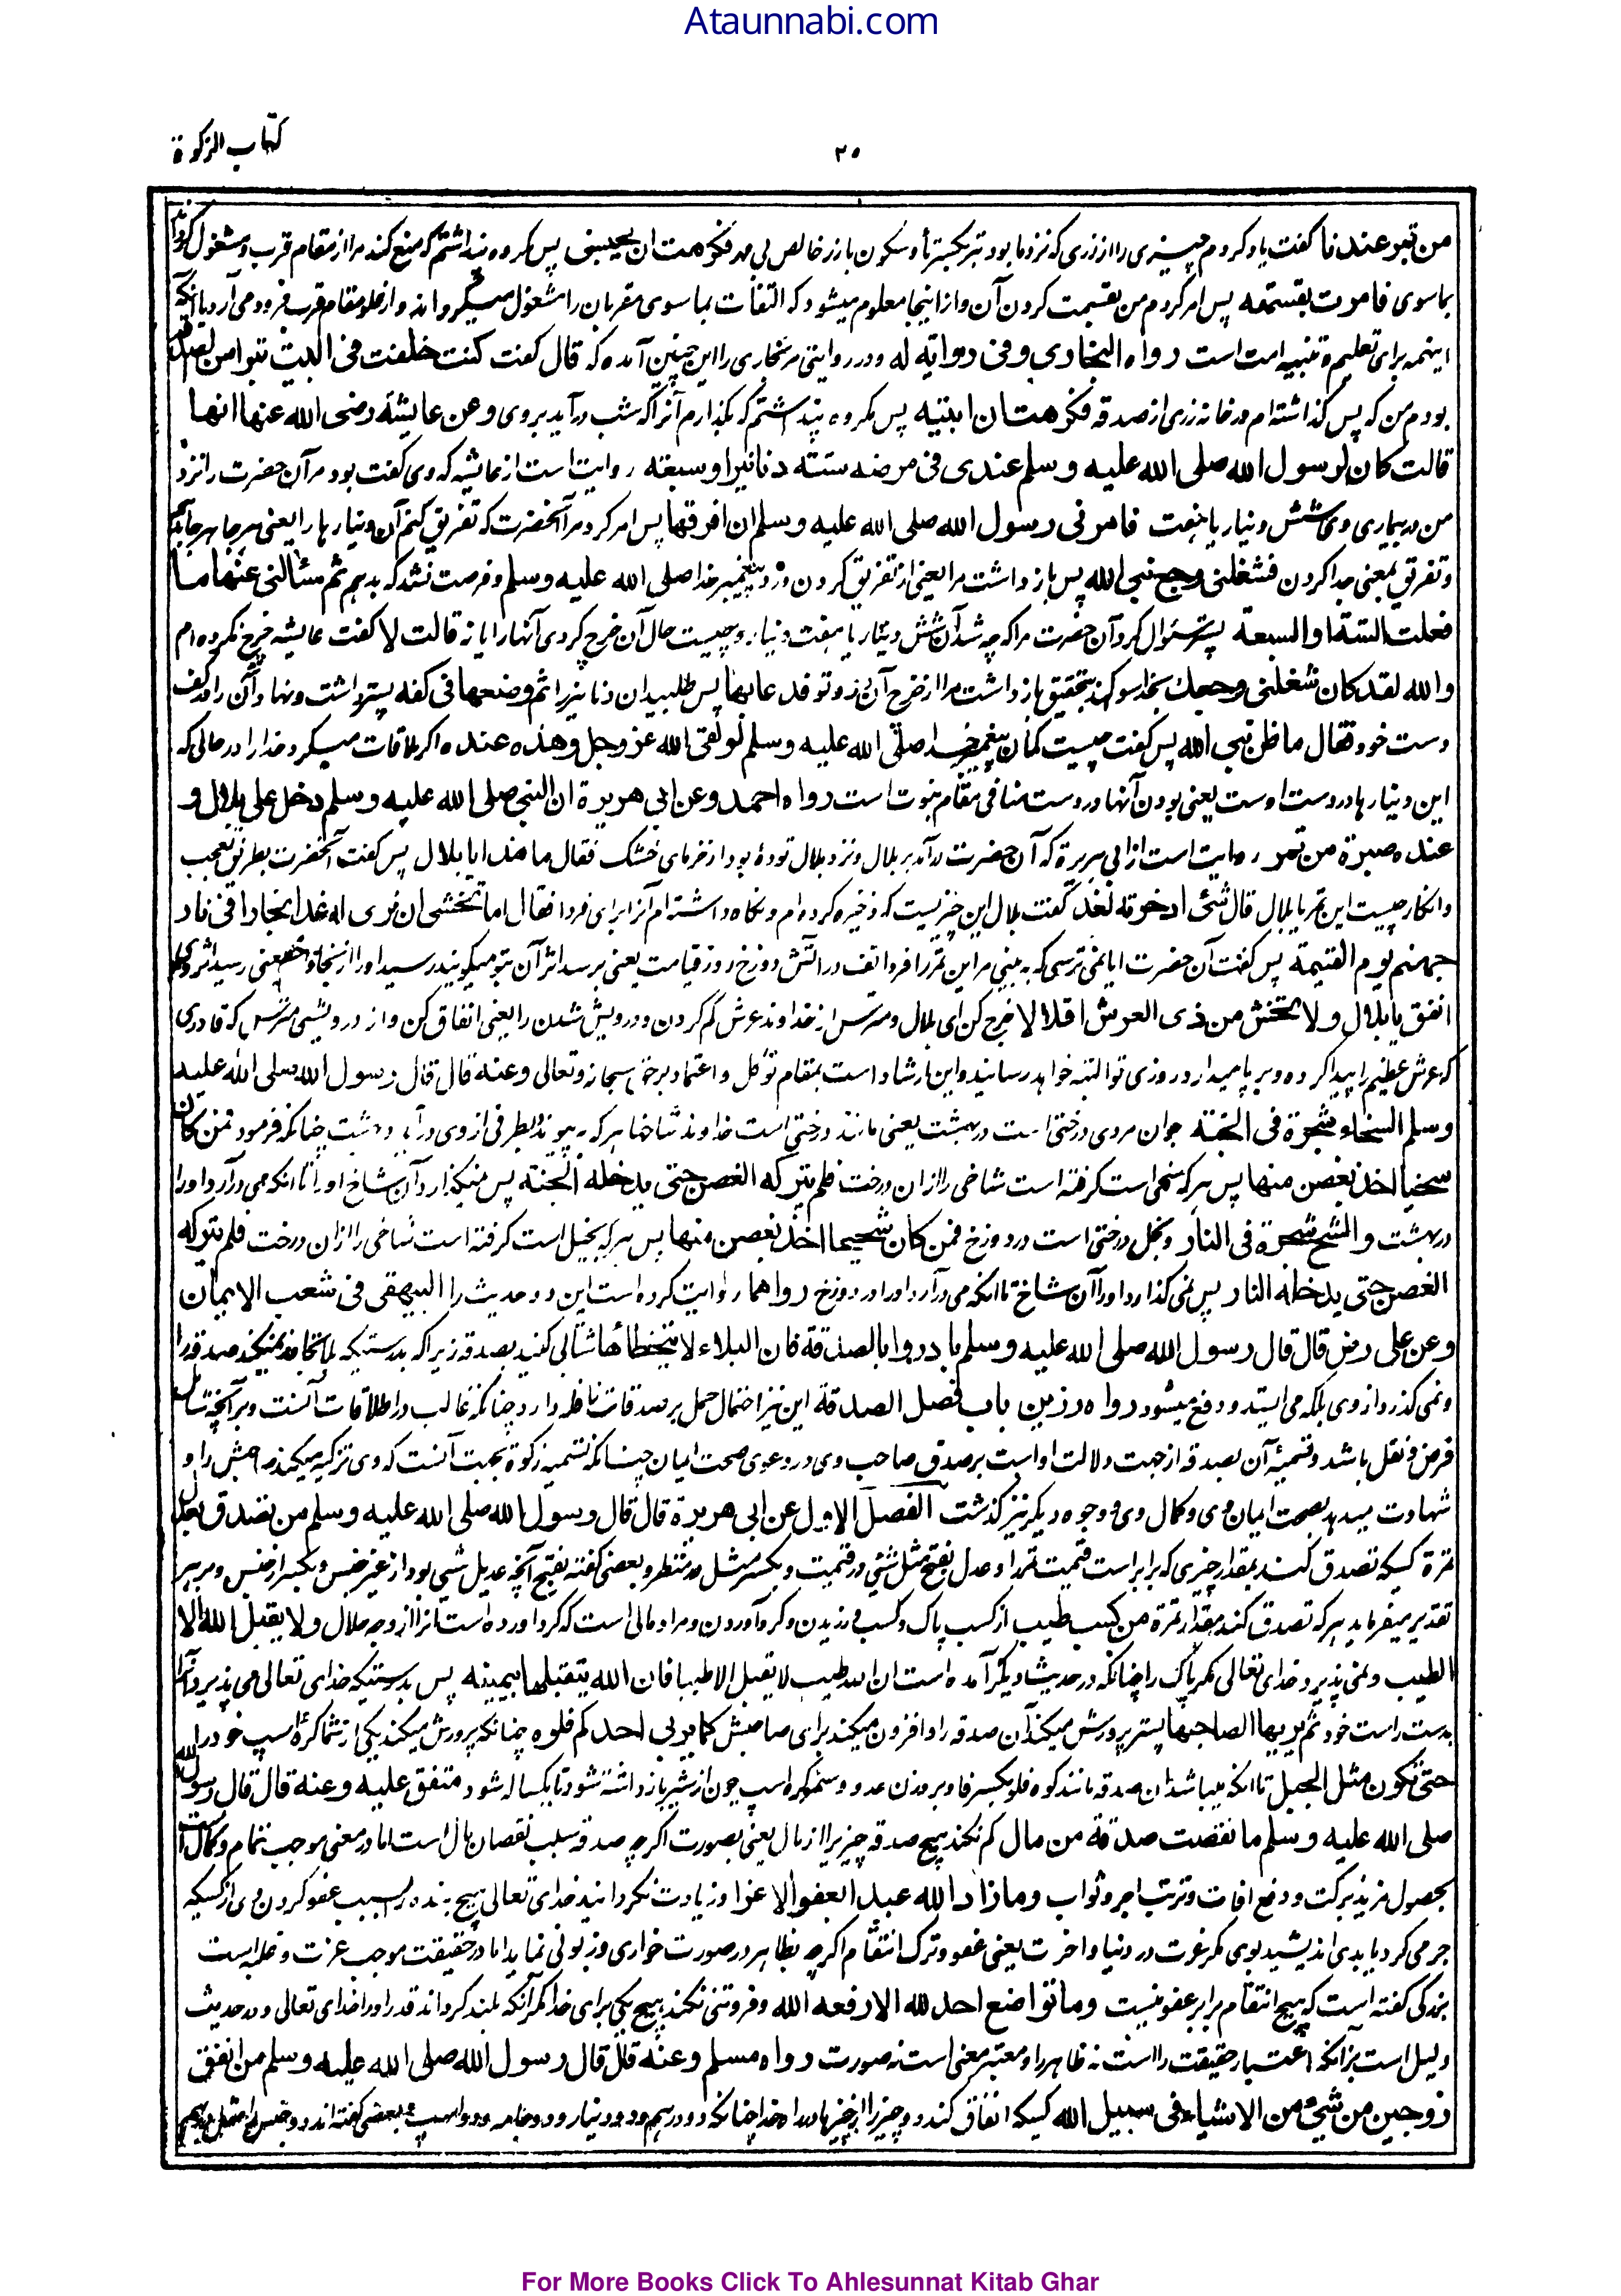 Ataunnabi.com
کتاب الزکوة
۲۵
من تبر عندنا گفت یاد کردم چیزی را از زری که نزد ما بود تبر بکسر تا و سکون با زر خالص بی مهر فکرهت ان یحبسنی پس مکروه پنداشتم که منع کند مرا از مقام قرب و مشغول گرداند
بماسوی فامرت بقسمته پس امر کردم من بقسمت کردن آن و از اینجا معلوم میشود که التفات بماسوی مقربان را مشغول میگرداند و از علو مقام قرب فرود می آرد یا آنکه
اینهمه برای تعلیم و تنبیه امت است رواه البخاری وفی روایة له و در روایتی مر بخاری را این چنین آمده که قال گفت کنت خلفت فی البیت تبرا من الصدقة
بودم من که پس گذاشته ام در خانه زری از صدقه فکرهت ان ابیته پس مکروه پنداشتم که بگذارم آنرا که شب در آید بروی وعن عایشة رضی الله عنها انها
قالت کان لرسول الله صلی الله علیه وسلم عندی فی مرضه ستة دنانیر او سبعة روایت است از عایشه که وی گفت بود مر آن حضرت را نزد
من در بیماری وی شش دینار یا هفت فامرنی رسول الله صلی الله علیه وسلم ان افرقها پس امر کرد مرا آنحضرت که تفریق کنم آن دینار ها را یعنی هر جا هر جا بدهم
و تفریق بمعنی جدا کردن فشغلنی وجع نبی الله پس باز داشت مرا یعنی از تفریق کردن درد پیغمبر خدا صلی الله علیه وسلم و فرصت نشد که بدهم ثم سئالنی عنها ما
فعلت الستة او السبعة پستر سئوال کرد آن حضرت مرا که چه شد آن شش دینار یا هفت دینار و چیست حال آن خرج کردی آنها را یا نه قالت لا گفت عایشه خرج نکرده ام
والله لقد کان شغلنی وجعک بخدا سوگند بتحقیق باز داشت مرا از خرج آن درد تو فدعا بها پس طلبید آن دنانیر را ثم وضعها فی کفه پستر داشت و نهاد آن را در کف
دست خود فقال ما ظن نبی الله پس گفت چیست گمان پیغمبر خدا صلی الله علیه وسلم لو لقی الله عز وجل وهذه عنده اگر ملاقات میکرد خدا را در حالی که
این دینار ها در دست اوست یعنی بودن آنها در دست منافی مقام نبوت است رواه احمد وعن ابی هریرة ان النبی صلی الله علیه وسلم دخل علی بلال و
عنده صبرة من تمر روایت است از ابی هریرة که آن حضرت در آمد بر بلال و نزد بلال تودهٔ بود از خرمای خشک فقال ما هذا یا بلال پس گفت آنحضرت بطریق تعجب
و انکار چیست این تمر یا بلال قال شئ ادخرته لغد گفت بلال این چیزیست که ذخیره کرده ام و نگاه داشته ام آنرا برای فردا فقال اما تخشی ان تری له غدا بخارا فی نار
جهنم یوم القیمة پس گفت آن حضرت ایا نمی ترسی که به بینی مر این تمر را فردا تف در آتش دوزخ روز قیامت یعنی برسد اثر آن بتو میگویند رسید او را از بخار وی یعنی رسید اثر وی
انفق یا بلال ولا تخش من ذی العرش اقلالا خرج کن ای بلال و مترس از خداوند عرش کم کردن و درویش شدن را یعنی انفاق کن و از درویشی مترس که قادری
که عرش عظیم را پیدا کرده و بر پا میدارد روزی تو البته خواهد رسانید و این ارشاد است بمقام توکل و اعتماد برحق سبحانه وتعالی وعنه قال قال رسول الله صلی الله علیه
وسلم السخاء شجرة فی الجنة جوان مردی درختی است در بهشت یعنی مانند درختی است خداوند شاخها هر که بپیوندد بطرفی از وی در آید در بهشت چنانکه فرمود فمن کان
سخیا اخذ بغصن منها پس هر که سخی است گرفته است شاخی را از ان درخت فلم یترکه الغصن حتی یدخله الجنة پس نمیگذارد آن شاخ او را تا آنکه می در آرد او را
در بهشت والشح شجرة فی النار و بخل درختی است در دوزخ فمن کان شحیحا اخذ بغصن منها پس هر که بخیل است گرفته است شاخی را از ان درخت فلم یترکه
الغصن حتی یدخله النار پس نمی گذارد او را آن شاخ تا آنکه می در آرد او را در دوزخ رواهما روایت کرده است این دو حدیث را البیهقی فی شعب الایمان
وعن علی رض قال قال رسول الله صلی الله علیه وسلم بادروا بالصدقة فان البلاء لا یتخطاها شتابی کنید بصدقه زیرا که بدرستیکه بلا تجاوز نمیکند صدقه را
و نمی گذرد از وی بلکه می ایستد و دفع میشود رواه رزین باب فضل الصدقة این نیز احتمال حمل بر صدقات نافله دارد چنانکه غالب در اطلاقات آنست و بر آنچه شامل
فرض و نفل باشد و تسمیه آن بصدقه از جهت دلالت اوست بر صدق صاحب وی در دعوی صحت ایمان چنانکه تسمیه زکوة بجهت آنست که وی تزکیه میکند صاحبش را و
شهادت میدهد بصحت ایمان وی و کمال وی و وجوه دیگر نیز گذشت الفصل الاول عن ابی هریرة قال قال رسول الله صلی الله علیه وسلم من تصدق بعدل
تمرة کسیکه تصدق کند بمقدار چیزی که برابر است قیمت تمر را و عدل بفتح مثل شئی در قیمت و بکسر مثل در منظر و بعضی گفته بفتح آنچه عدیل شئی بود از غیر جنس و بکسر از جنس و بر هر
تقدیر میفرماید هر که تصدق کند مقدار تمرة من کسب طیب از کسب پاک و کسب ورزیدن و گرد آوردن و مراد مالی است که گرد آورده است آنرا از وجه حلال ولا یقبل الله الا
الطیب و نمی پذیرد خدای تعالی مگر پاک را چنانکه در حدیث دیگر آمده است ان الله طیب لا یقبل الا طیبا فان الله یتقبلها بیمینه پس بدرستیکه خدای تعالی می پذیرد آنرا
بدست راست خود ثم یربیها لصاحبها پستر پرورش میکند آن صدقه را و افزون میکند برای صاحبش کما یربی احدکم فلوه چنانکه پرورش میکند یکی از شما کرهٔ اسپ خود را
حتی تکون مثل الجبل تا آنکه میباشد آن صدقه مانند کوه فلو بکسر فا و بر وزن عدو و سمو کره اسپ چون از شیر باز داشته شود تا یکساله شود متفق علیه وعنه قال قال رسول الله
صلی الله علیه وسلم ما نقصت صدقة من مال کم نکند هیچ صدقه چیزیرا از مال یعنی بصورت اگرچه صدقه سبب نقصان مال است اما در معنی موجب تمام و کمال است
بحصول مزید برکت و دفع افات و ترتب اجر و ثواب وما زاد الله عبدا بعفو الا عزا و زیادت نگردانید خدای تعالی هیچ بنده را بسبب عفو کردن وی از کسیکه
جرمی کرد یا بدی اندیشید بوی مگر عزت در دنیا و اخرت یعنی عفو و ترک انتقام اگرچه بظاهر در صورت خواری و زبونی نماید اما در حقیقت موجب عزت و غلبه است
بزرگی گفته است که هیچ انتقام برابر عفو نیست وما تواضع احد لله الا رفعه الله و فروتنی نکند هیچ یکی برای خدا مگر آنکه بلند گرداند قدر او را خدای تعالی و در حدیث
دلیل است بر آنکه اعتبار حقیقت راست نه ظاهر را و معتبر معنی است نه صورت رواه مسلم وعنه قال قال رسول الله صلی الله علیه وسلم من انفق
زوجین من شئ من الاشیاء فی سبیل الله کسیکه انفاق کند دو چیز را از چیزها در راه خدا چنانکه دو درهم و دو دینار و دو جامه و دو اسپ و بعضی گفته اند دو جنس
For More Books Click To Ahlesunnat Kitab Ghar